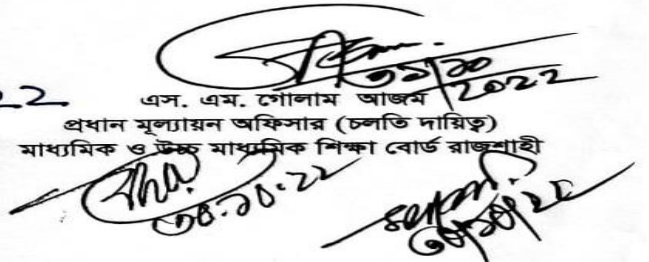 ৩১/১০
2022
22
এস. এম. গোলাম আজম
প্রধান মূল্যায়ন অফিসার (চলতি দায়িত্ব)
মাধ্যমিক ও উচ্চ মাধ্যমিক শিক্ষা বোর্ড রাজশাহী
৩০.১০.২২
৩০/১০/২২